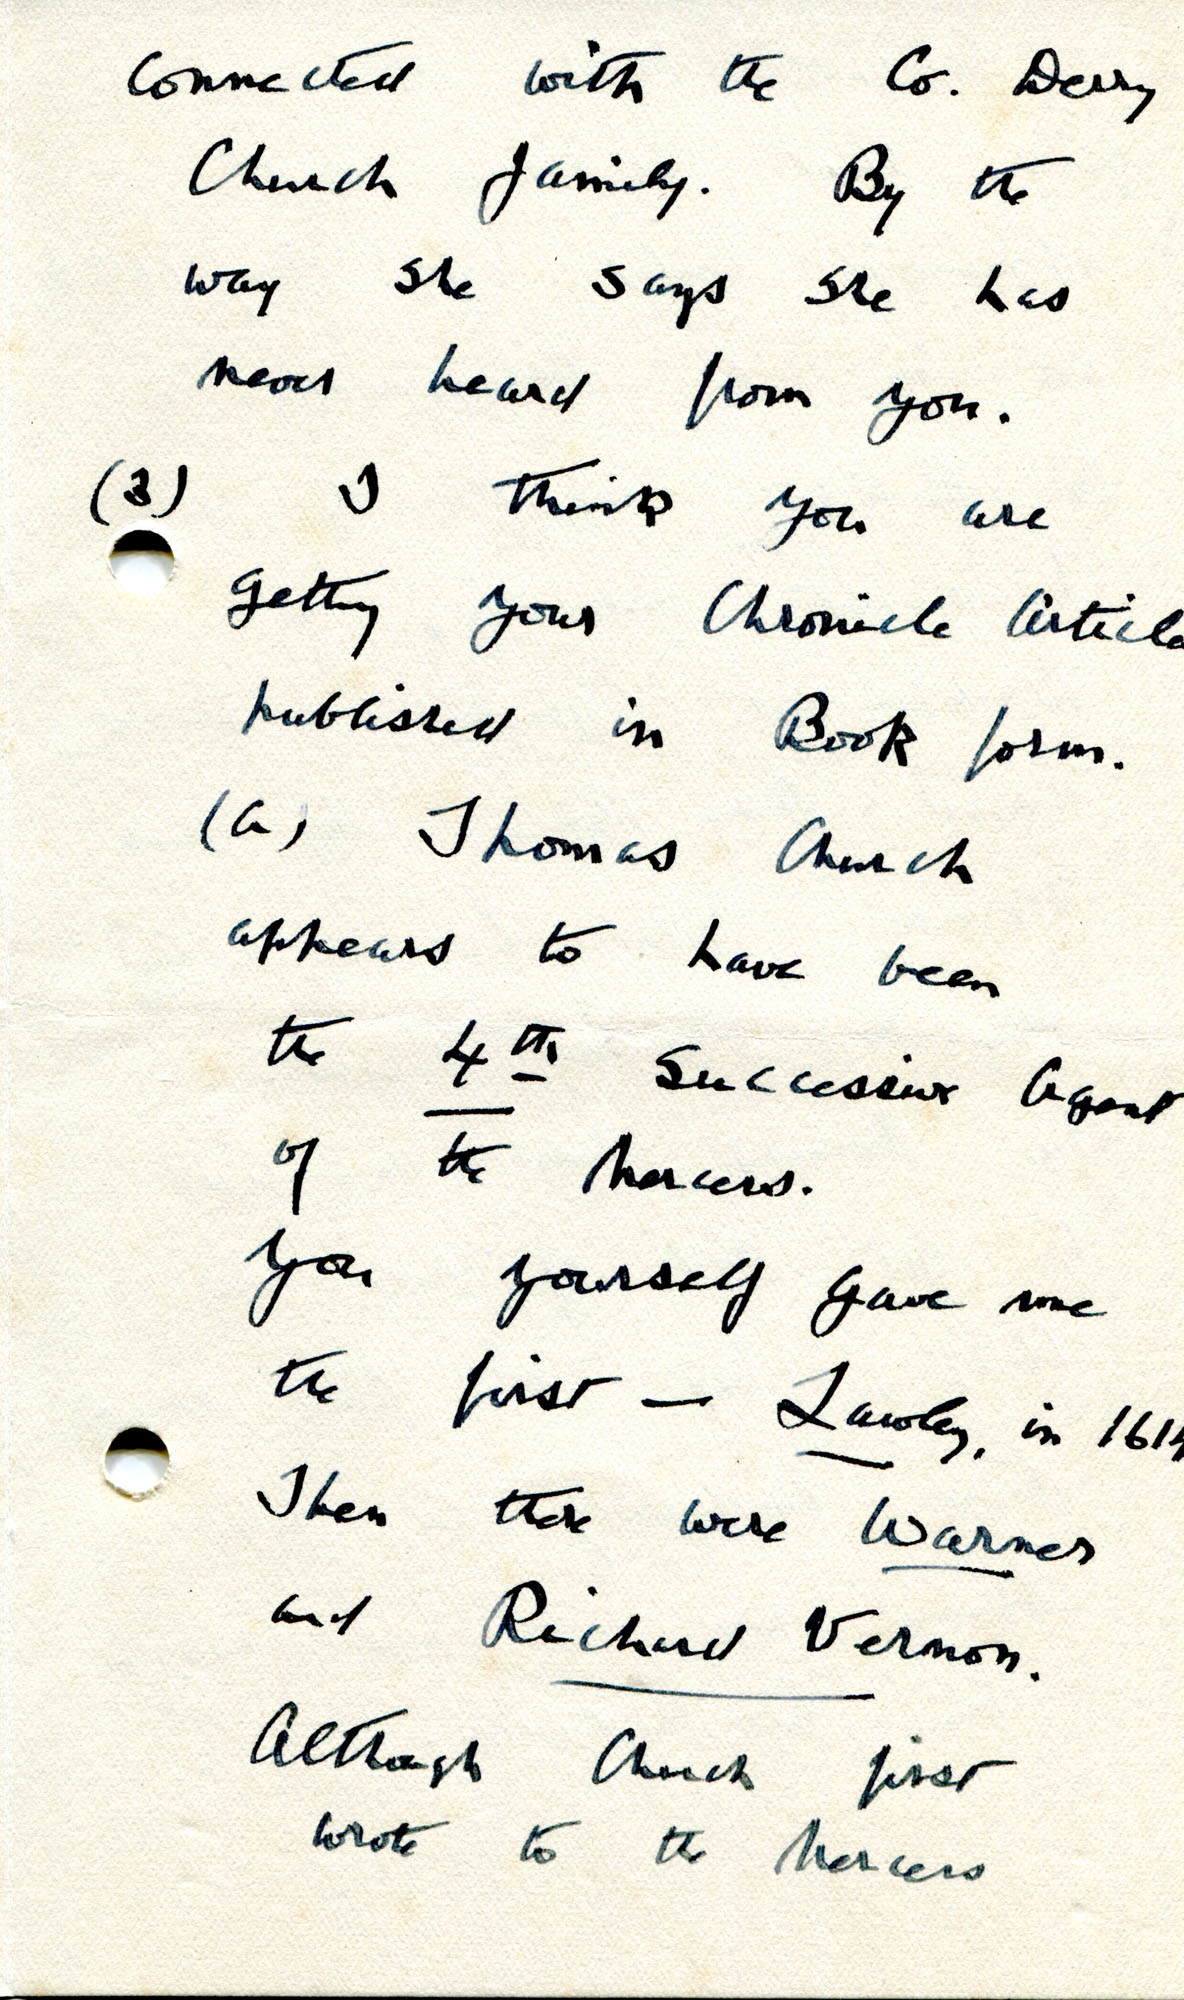 connected with the Co. Derry
Church family. By the
way she says she has
never heard from you.
(3) I think you are
getting your Chronicle Article
published in Book form.
(a) Thomas Church
appears to have been
the 4th Successive Agent
of the Mercers.
You yourself gave me
the first — Lawley, in 1614
Then there were Warner
and Richard Vernon.
Although Church first
wrote to the Mercers